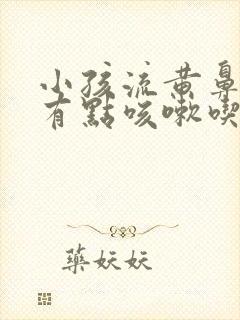 小孩流黄鼻
有點咳嗽喫
藥妖妖